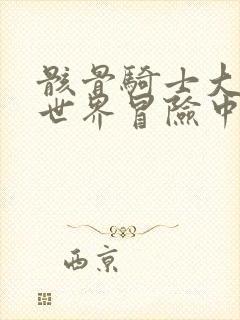 骸骨騎士大
世界冒險中
西京